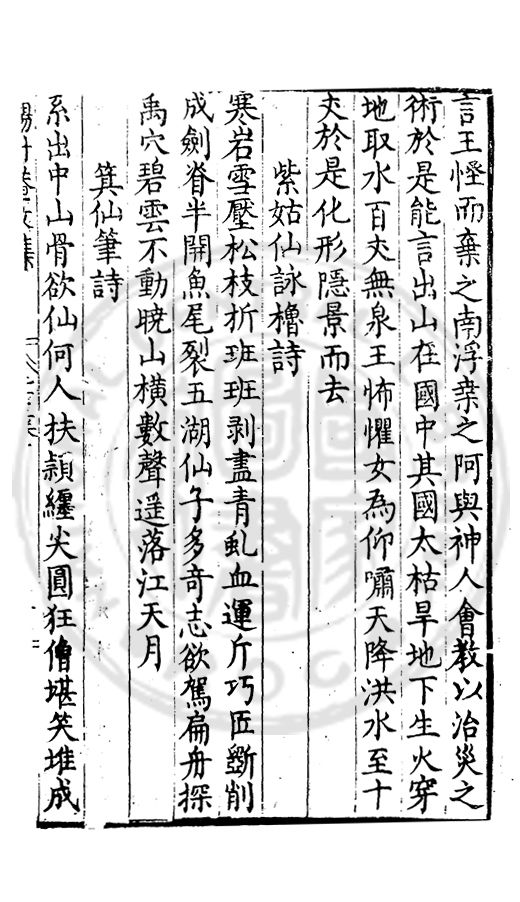 言王怪而棄之南浮桒之阿與神人會教以治災之
術於是能言出山在國中其國太枯旱地下生火穿
地取水百丈無泉王怖懼女為仰嘯天降洪水至十
丈於是化形隱景而去
紫姑仙詠櫓詩
寒岩雪壓松枝折班班剥盡青虬血運斤巧匠斵削
成劍脊半開魚尾裂五湖仙子多奇志欲駕扁舟探
禹穴碧雲不動曉山橫數聲遥落江天月
箕仙筆詩
系出中山骨欲仙何人扶穎纏尖圓狂僧堪笑堆成